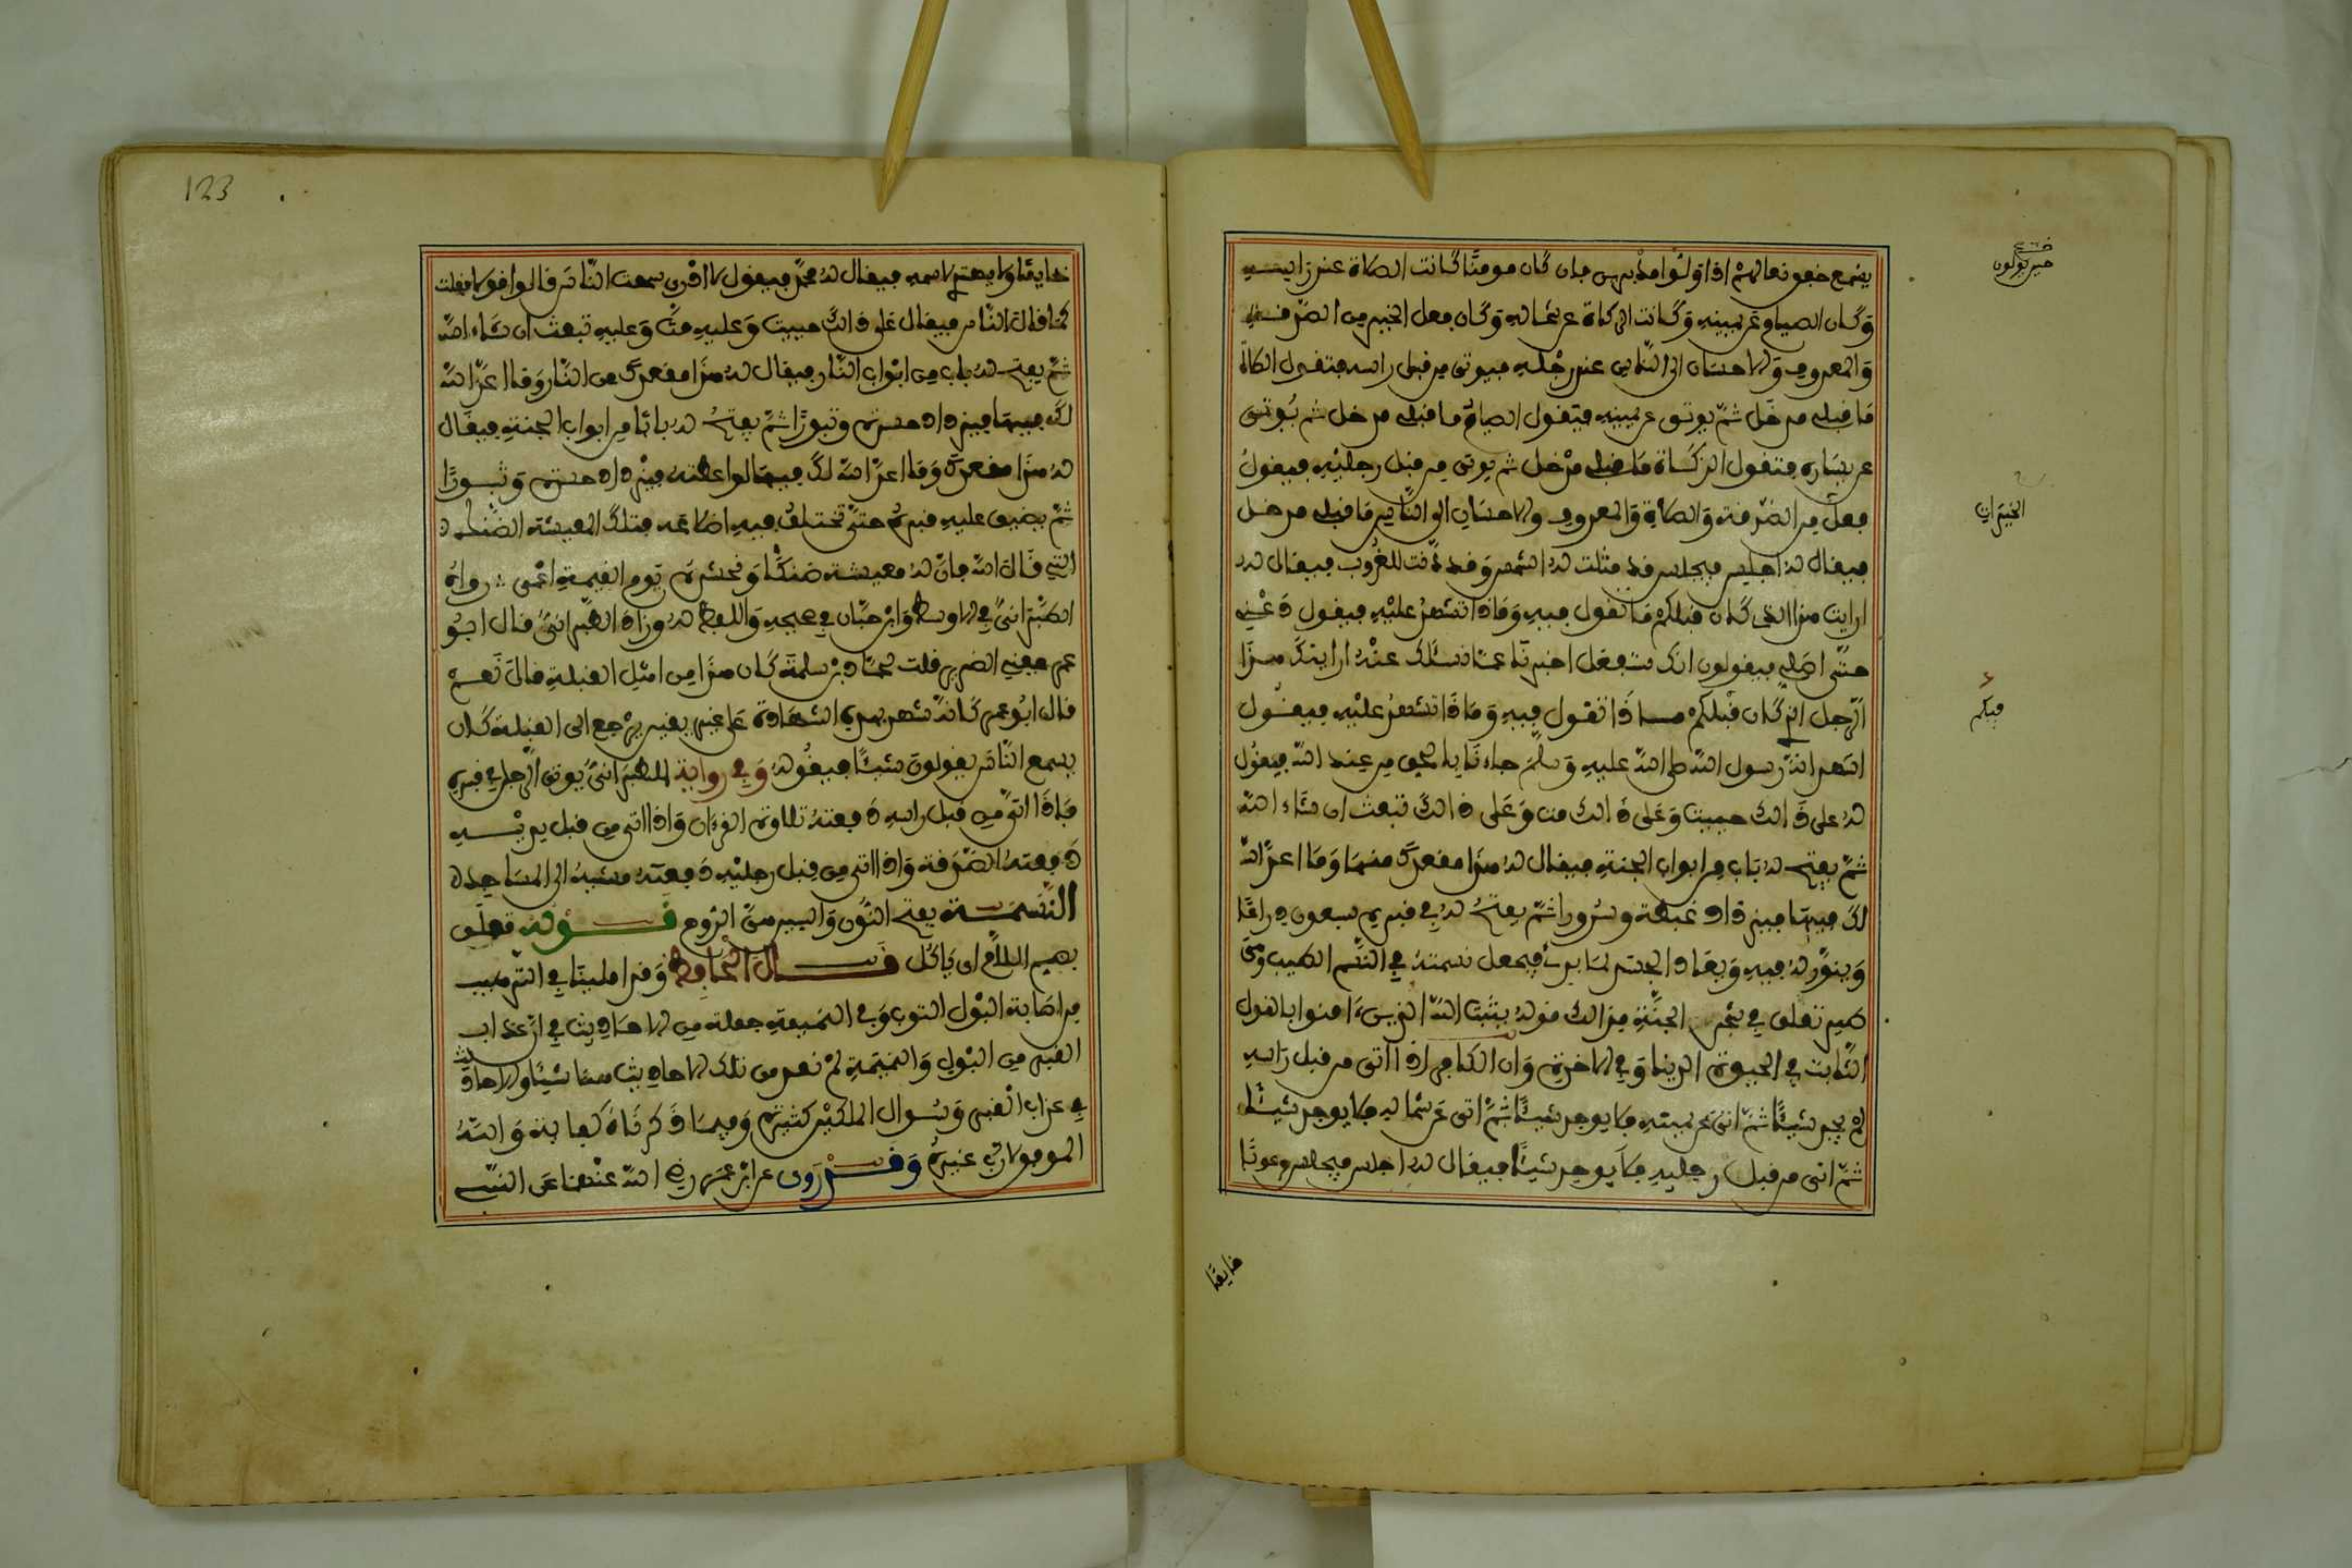 يسمع خفق نعالهم اذا ولوا مدبرين فان كان مومنا كانت الصلاة عند راسه
وكان الصيام عن يمينه وكانت الزكاة عن شماله وكان فعل الخير من الصدقة
والمعروف والاحسان الى الناس عند رجليه فيوتى من قبل راسه فتقول الصلاة
ما قبلي مدخل ثم يوتى عن يمينه فيقول الصيام ما قبلي مدخل ثم يوتى
عن يساره فتقول الزكاة ما قبلي مدخل ثم يوتى من قبل رجليه فيقول
فعل من الصدقة والصلاة والمعروف والاحسان الى الناس ما قبلي مدخل
فيقال له اجلس فيجلس قد مثلت له الشمس وقد دنت للغروب فيقال له
ارايت هذا الذي كان قبلكم ما تقول فيه وماذا تشهد عليه فيقول دعني
حتى اصلي فيقولون انك ستفعل اخبرنا عما نسئلك عنه ارايتك هذا
الرجل الذي كان قبلكم ماذا تقول فيه وماذا تشهد عليه فيقول
اشهد انه رسول الله صلى الله عليه وسلم جاءنا بالحق من عند الله فيقال
له على ذالك حييت وعلى ذالك مت وعلى ذالك تبعث ان شاء الله
ثم يفتح له باب من ابواب الجنة فيقال له هذا مقعدك منها وما اعد الله
لك فيها فيزداد غبطة وسرورا ثم يفتح له في قبره سبعون ذراعا
وينور له فيه ويعاد الجسد لما بدا فيجعل نسمته في النسم الطيب وهي
طير تعلق في شجر الجنة فذالك قوله يثبت الله الذين ءامنوا بالقول
الثابت في الحيوة الدنيا وفي الاخرة وان الكافر اذا اتى من قبل راسه
لم يجد شيئا ثم اتى عن يمينه فلا يوجد شيئا ثم اتى عن شماله فلا يوجد شيئا
ثم اتى من قبل رجليه فلا يوجد شيئا فيقال له اجلس فيجلس مرعوبا
حين يولون
الخيرات
فيكم
خايفا
123
خايفا ولا يهتدي لاسمه فيقال له محمد فيقول لا ادري سمعت الناس قالوا قولا فقلت
كما قال الناس فيقال على ذالك حييت وعليه مت وعليه تبعث ان شاء الله
ثم يفتح له باب من ابواب النار فيقال له هذا مقعدك من النار وما اعد الله
لك فيها فيزداد حسرة وثبورا ثم يفتح له بابا من ابواب الجنة فيقال
له هذا مقعدك وما اعد الله لك فيها لو اطعته فيزداد حسرة وثبورا
ثم يضيق عليه قبره حتى تختلف فيه اضلاعه فتلك المعيشة الضنك
التي قال الله فان له معيشة ضنكا ونحشره يوم القيمة اعمى رواه
الطبراني في الاوسط وابن حبان في صحيحه واللفظ له وزاد الطبراني قال ابو
عمر يعني الضرير قلت لحماد بن سلمة كان هذا من اهل القبلة قال نعم
قال ابو عمر كانه شهد بهذه الشهادة على غير يقين يرجع الى القبلة كان
يسمع الناس يقولون شيئا فيقوله وفي رواية للطبراني يوتى الرجل في قبره
فاذا اتى من قبل راسه دفعته تلاوة القرءان واذا اتى من قبل يديه
دفعته الصدقة واذا اتى من قبل رجليه دفعته مشيه الى المساجد
النسمة بفتح النون والسين هي الروح قوله تعلق
بضم اللام اي ياكل قال الحافظ وقد املينا في الترهيب
من اصابة البول الثوب وفي النميمة جملة من الاحاديث في ان عذاب
القبر من البول والنميمة لم نعد من تلك الاحاديث هنا شيئا والاحاديث
في عذاب القبر وسوال الملكين كثيرة وفيما ذكرناه كفاية والله
الموفق لا رب غيره وقد روى عن ابن عمر رضي الله عنهما عن النبي